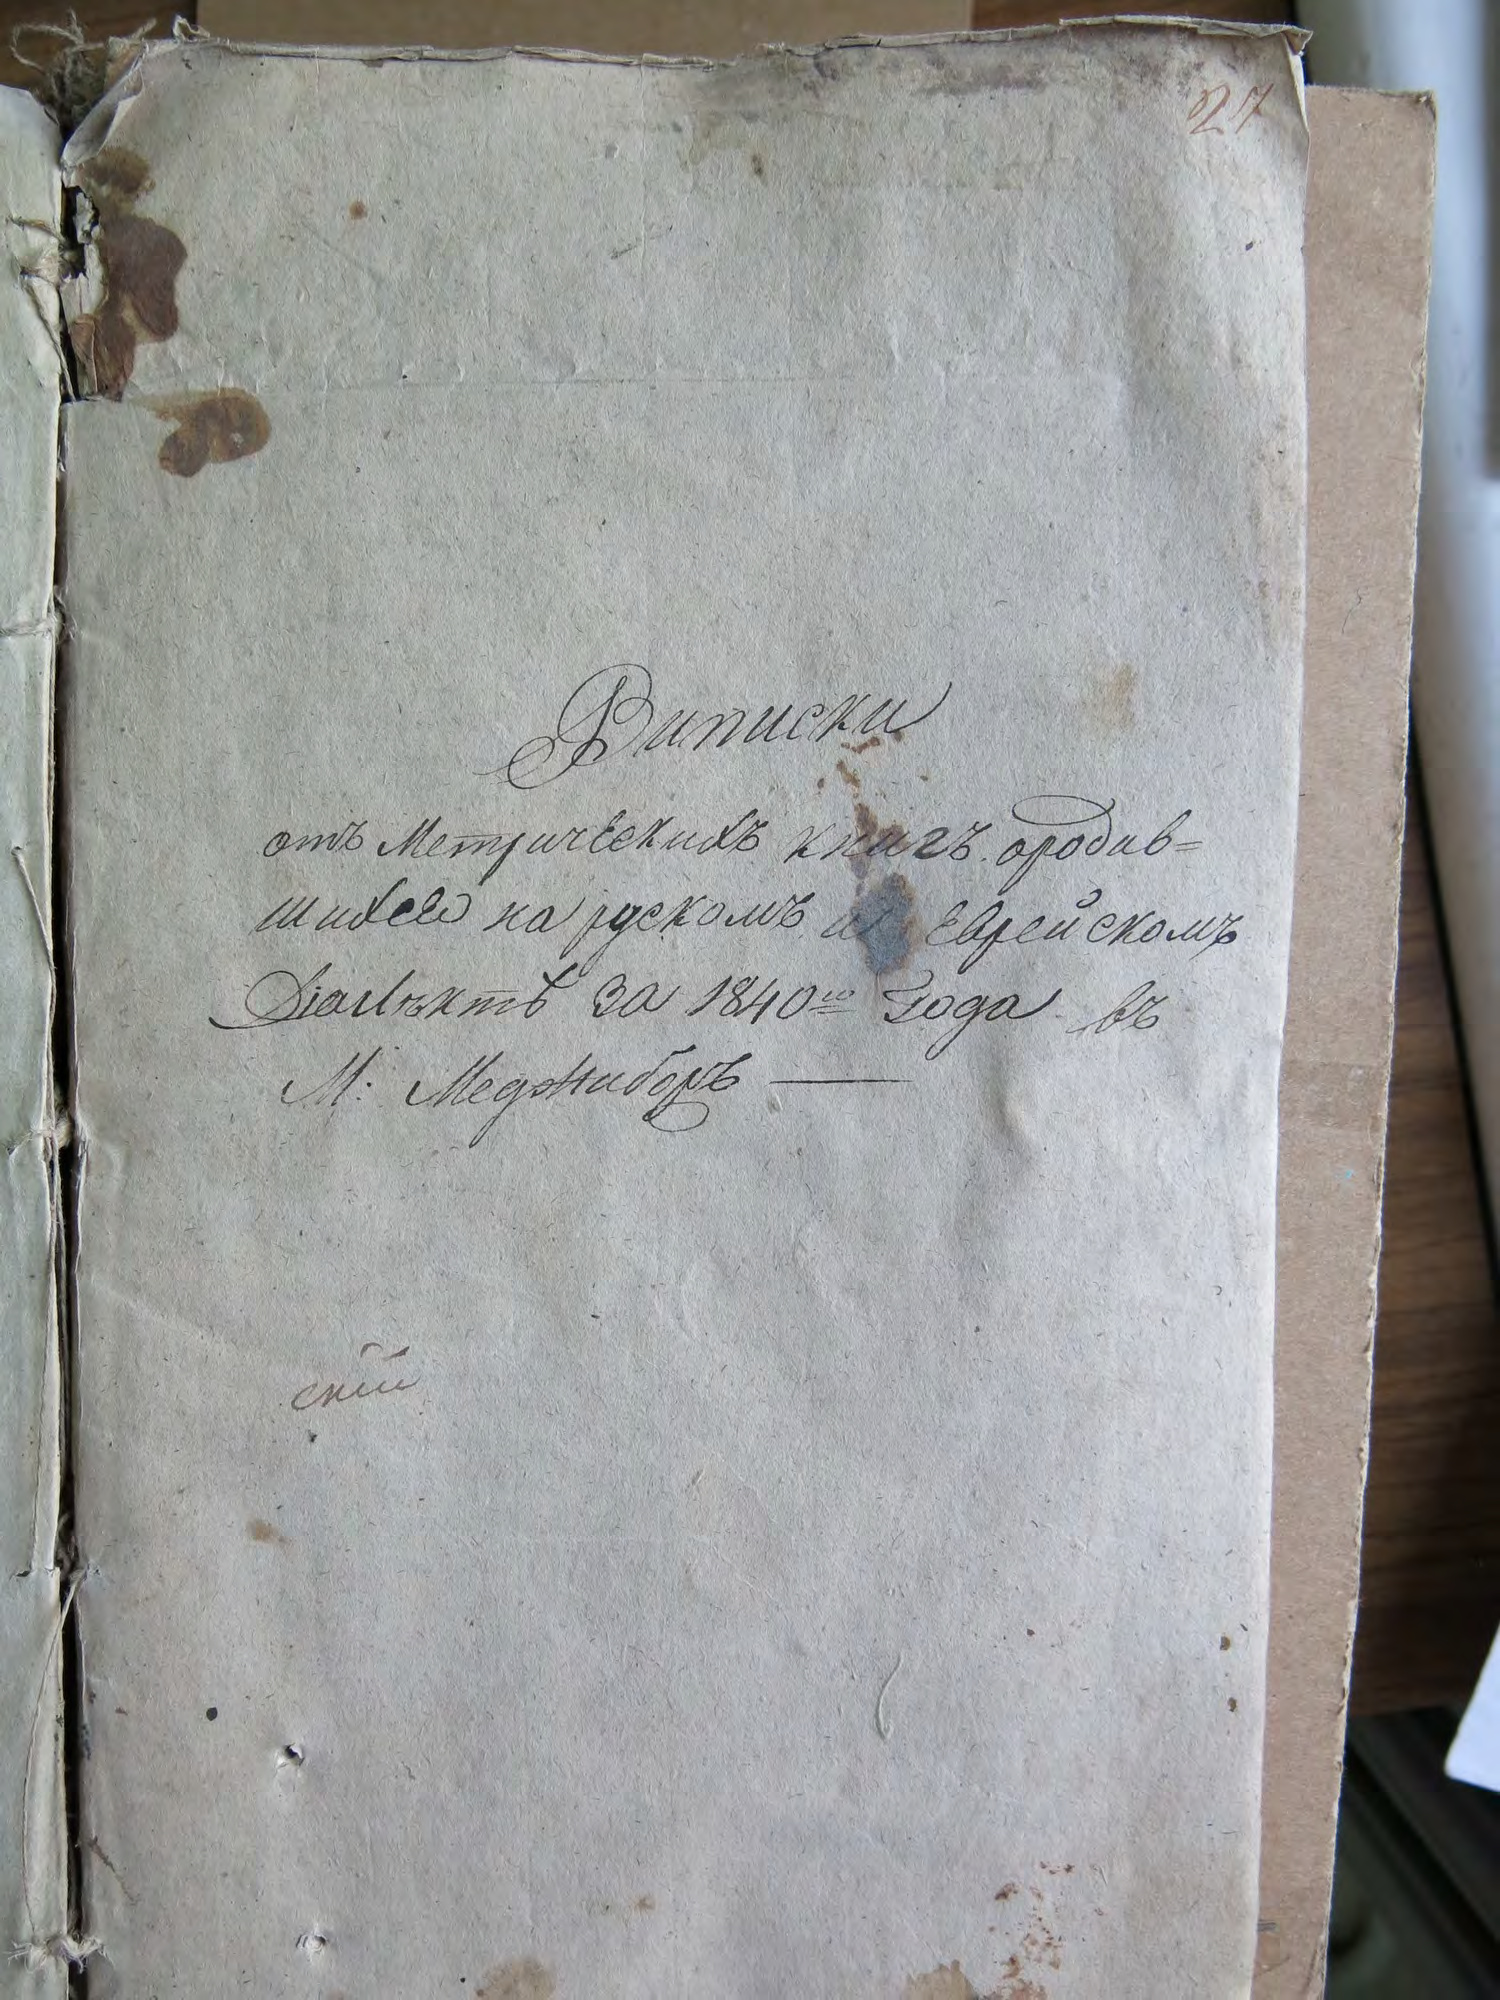 27
Виписки
отъ Метрическихъ книгъ ородив=
шихсе на рускомъ и Еврейскомъ
Діалѣктѣ за 1840го Года въ
М: Меджиборѣ —
скій